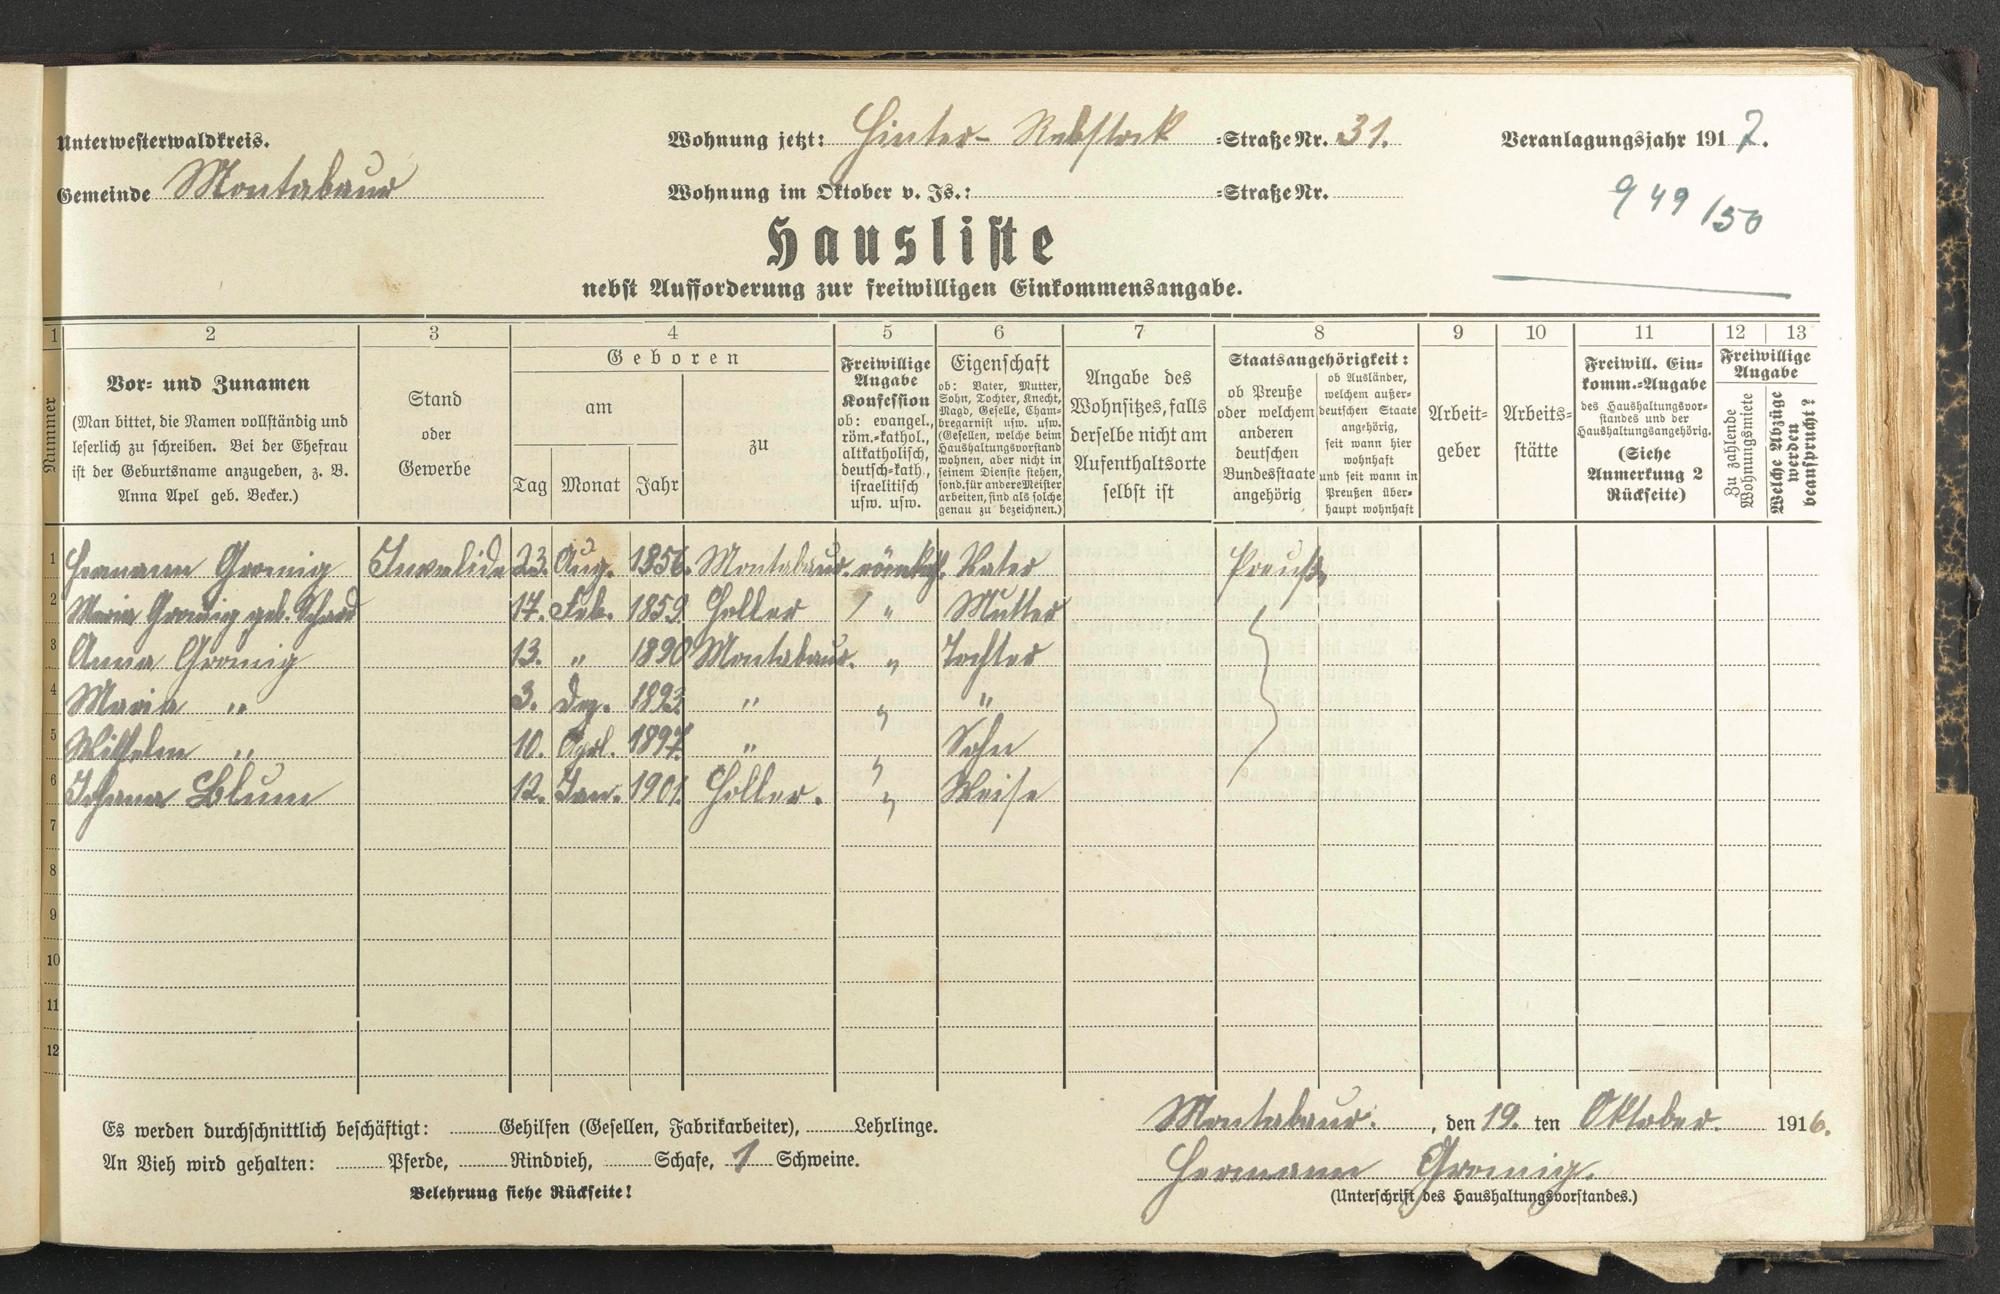 Unterwesterwaldkreis.
Wohnung jetzt: Hinter-Rebstock =Straße Nr. 31.
Veranlagungsjahr 1917.
Gemeinde Montabaur
Wohnung im Oktober v. Js.: =Straße Nr.
949/50
Hausliste
nebst Aufforderung zur freiwilligen Einkommensangabe.
1 2 3 4 5 6 7 8 9 10 11 12 13
Nummer
Vor- und Zunamen
(Man bittet, die Namen vollständig und
leserlich zu schreiben. Bei der Ehefrau
ist der Geburtsname anzugeben, z. B.
Anna Apel geb. Becker.)
Stand
oder
Gewerbe
Geboren
am
Tag Monat Jahr
zu
Freiwillige
Angabe
Konfession
ob: evangel.,
röm.-kathol.,
altkatholisch,
deutsch-kath.,
israelitisch
usw. usw.
Eigenschaft
ob: Vater, Mutter,
Sohn, Tochter, Knecht,
Magd, Geselle, Cham-
bregarnist usw. usw.
(Gesellen, welche beim
Haushaltungsvorstand
wohnen, aber nicht in
seinem Dienste stehen,
sond. für andere Meister
arbeiten, sind als solche
genau zu bezeichnen.)
Angabe des
Wohnsitzes, falls
derselbe nicht am
Aufenthaltsorte
selbst ist
Staatsangehörigkeit:
ob Preuße
oder welchem
anderen
deutschen
Bundesstaate
angehörig
ob Ausländer,
welchem außer-
deutschen Staate
angehörig,
seit wann hier
wohnhaft
und seit wann in
Preußen über-
haupt wohnhaft
Arbeit-
geber
Arbeits-
stätte
Freiwill. Ein-
komm.-Angabe
des Haushaltungsvor-
standes und der
Haushaltungsangehörig.
(Siehe
Anmerkung 2
Rückseite)
Freiwillige
Angabe
Zu zahlende
Wohnungsmiete
Welche Abzüge
werden
beansprucht?
1 Hermann Gromig Invalide 23. Aug. 1856. Montabaur. römkath. Vater Preuße
2 Maria Gromig geb. Schard 17. Feb. 1859 Holler / " Mutter
3 Anna Gromig 13. " 1890 Montabaur. " Tochter
4 Maria " 3. Dez. 1893 " " "
5 Wilhelm " 10. April. 1897 " " Sohn
6 Johann Blum 12. Jan. 1901. Holler. " Waise
7
8
9
10
11
12
Es werden durchschnittlich beschäftigt: Gehilfen (Gesellen, Fabrikarbeiter), Lehrlinge.
An Vieh wird gehalten: Pferde, Rindvieh, Schafe, 1 Schweine.
Belehrung siehe Rückseite!
Montabaur. , den 19. ten Oktober. 1916.
Hermann Gromig.
(Unterschrift des Haushaltungsvorstandes.)